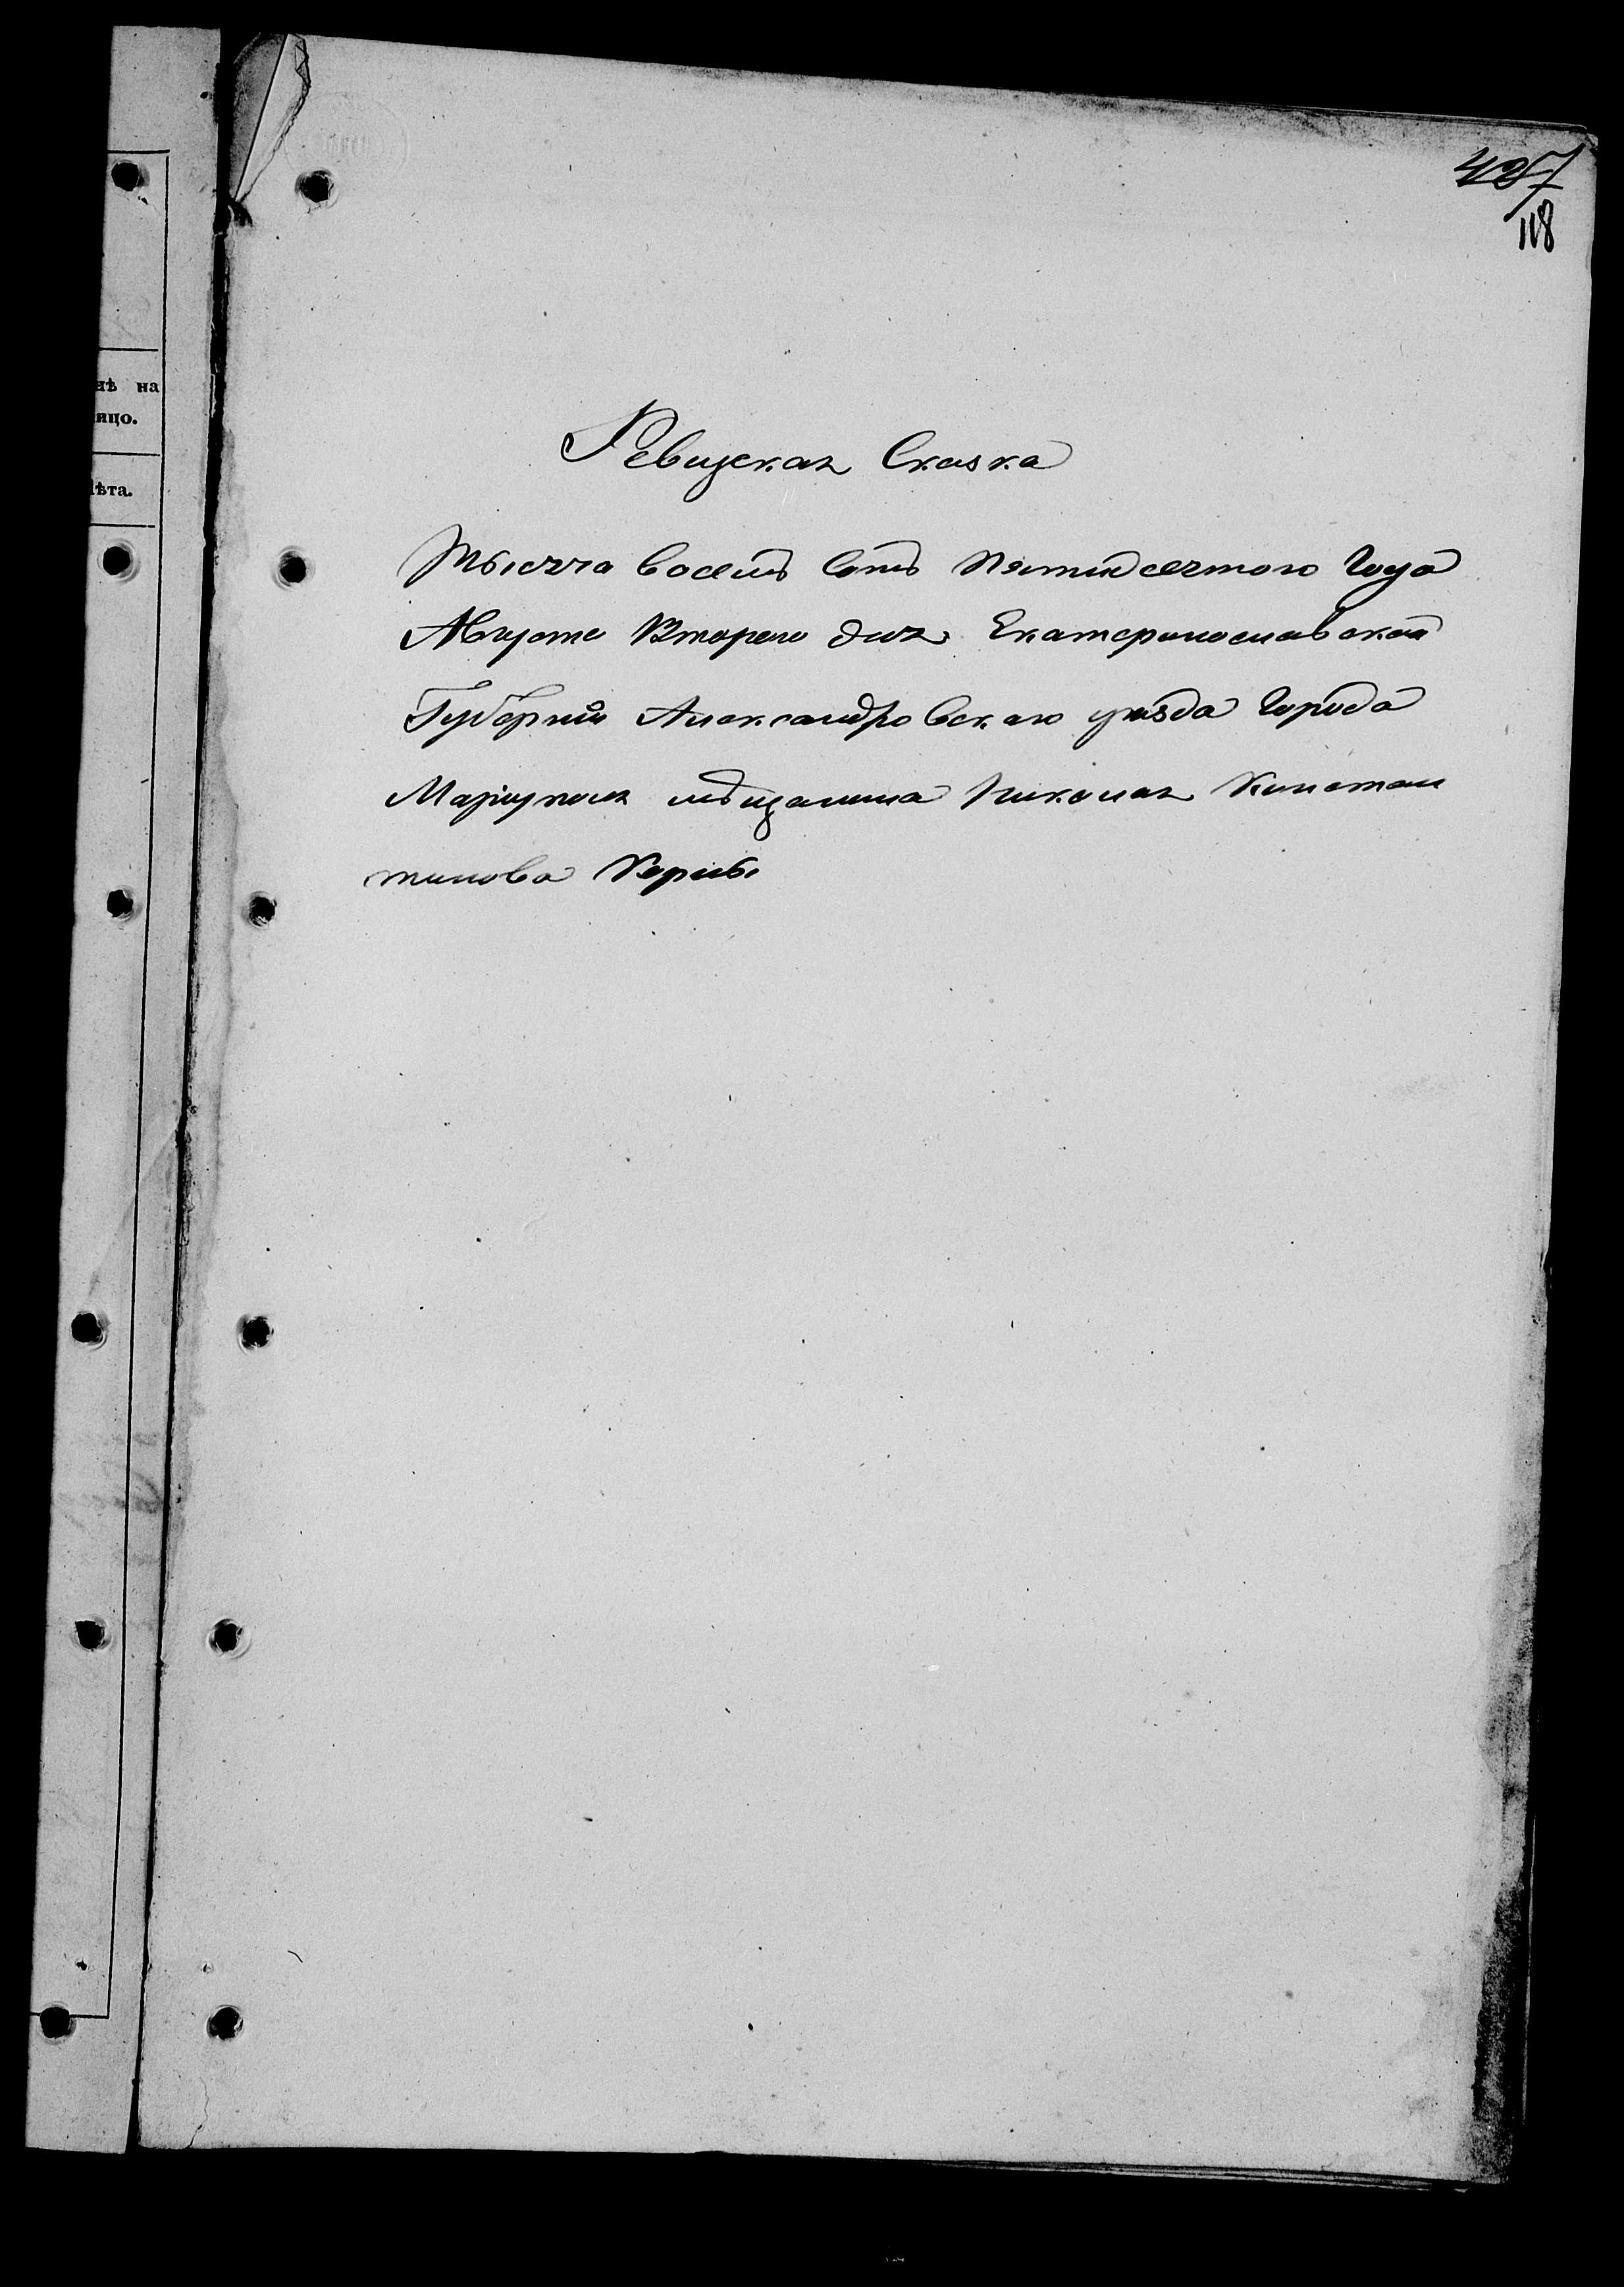 427
118
нѣ на
ицо.
Лѣта.
Ревизская Сказка
Тысяча восемь Сотъ Пятидесятого Года
Августа Второго дня Екатеринославской
Губернiи Александровского уѣзда Города
Марiуполя мѣщанина Николая Констан
тинова